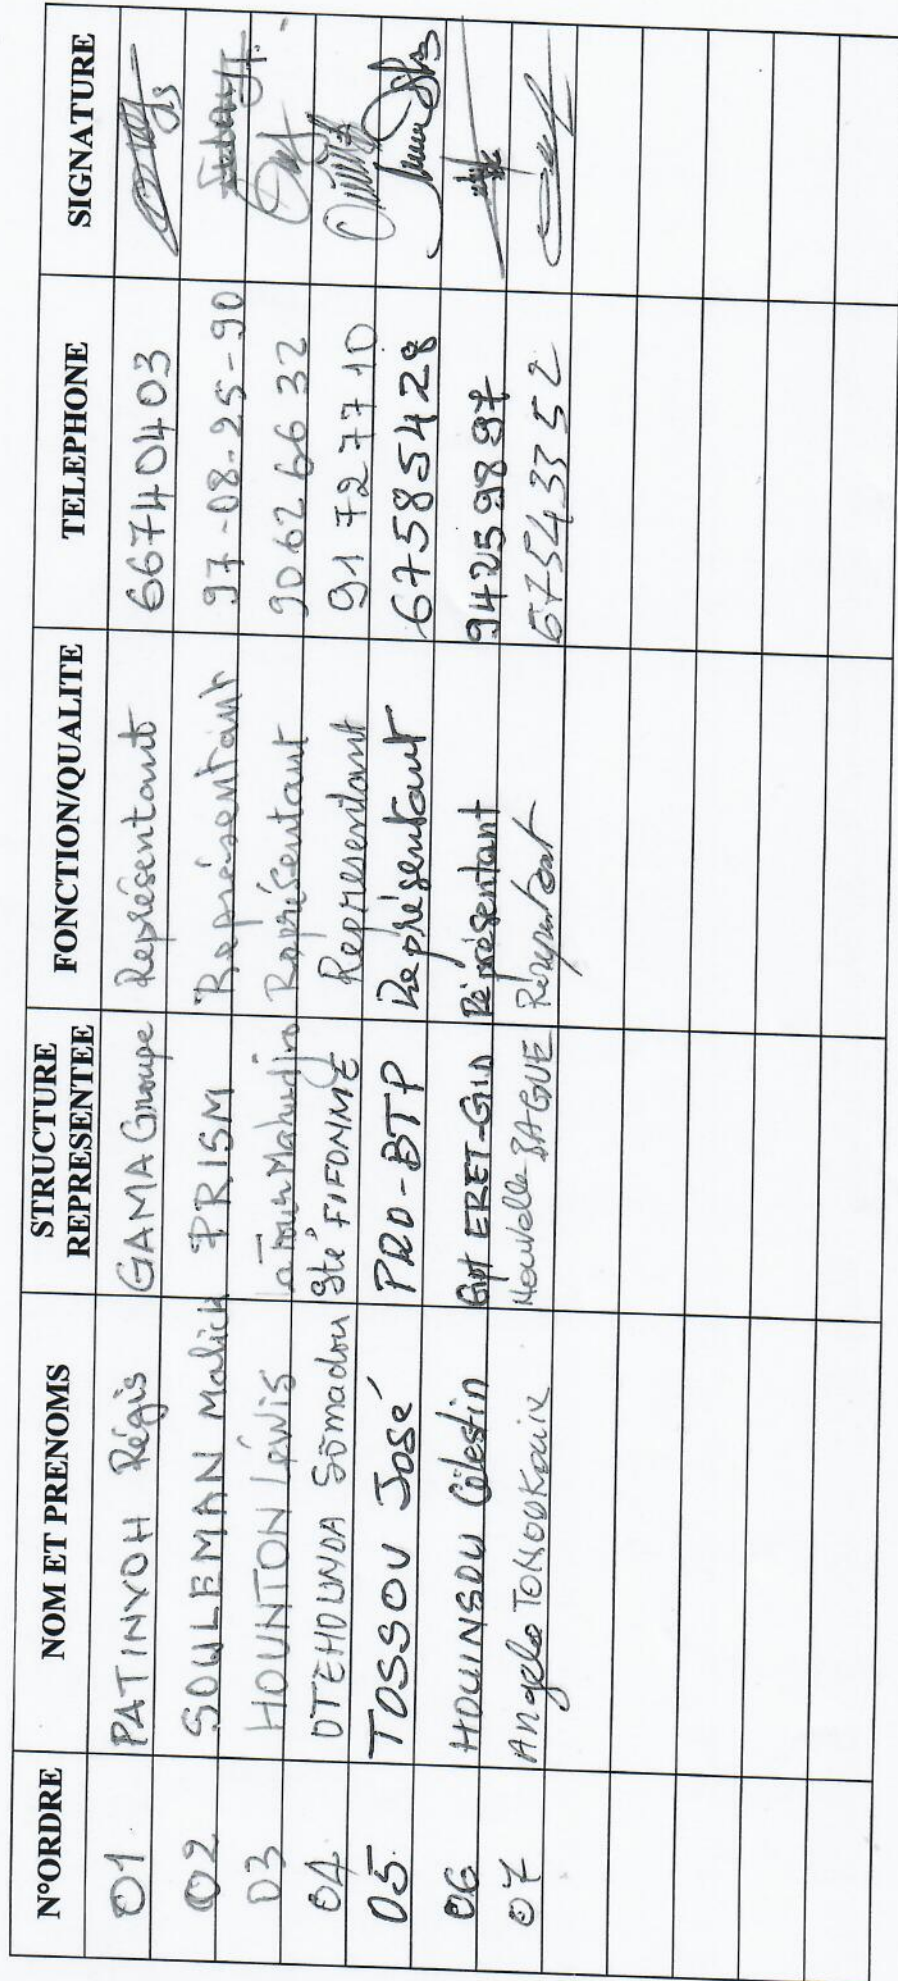 N°ORDRE NOM ET PRENOMS STRUCTURE REPRESENTEE FONCTION/QUALITE TELEPHONE SIGNATURE
01 PATINVOH Régis GAMA Groupe Représentant 66740403
02 SOULEMAN Malick PRISM Représentant 97-08-25-90
03 HOUNTON Léwis la Tour Mahudjro Représentant 90626632
04 OTEHOUNDA Sômadou Sté FIFONMÈ Représentant 91727710
05 TOSSOU José PRO-BTP Représentant 67585428
06 HOUINSOU Célestin Gpt ERET-GID Réprésentant 94259897
07 Angelo Nouvelle BAGUE 67543352